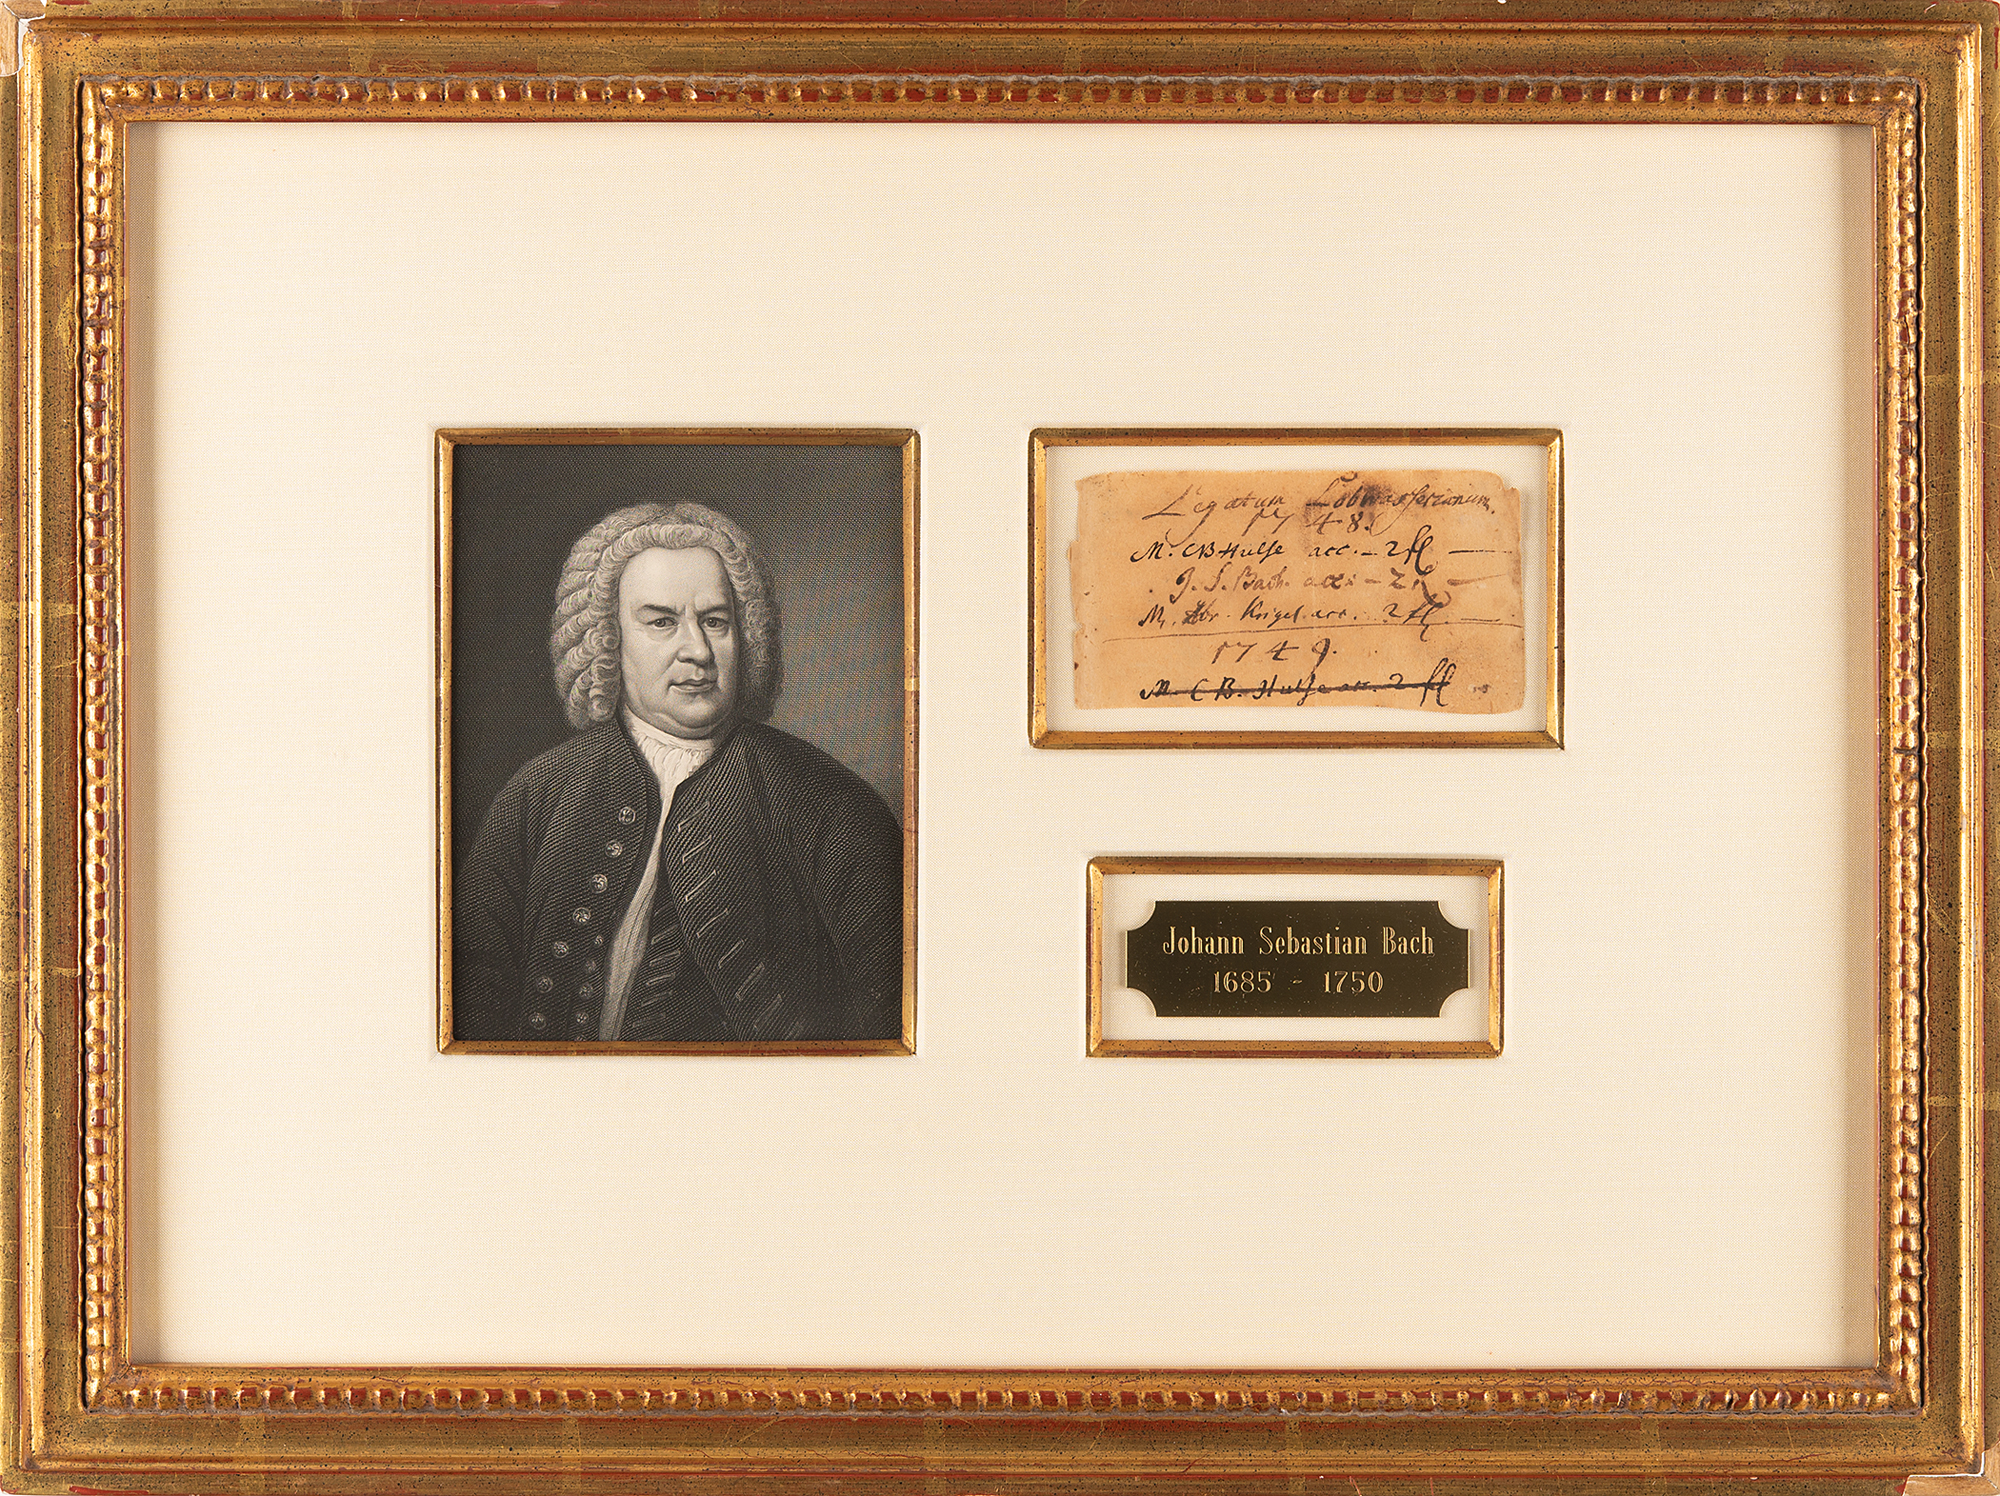 Legatum Lobwasserianum.
1748.
M. CB Hülse acc. – 2 fl —
J. S. Bach. acc: – 2 —
M. Abr. Krigel. acc. 2 fl —
1749.
M. C B. Hülse acc. 2 fl
Johann Sebastian Bach
1685 - 1750